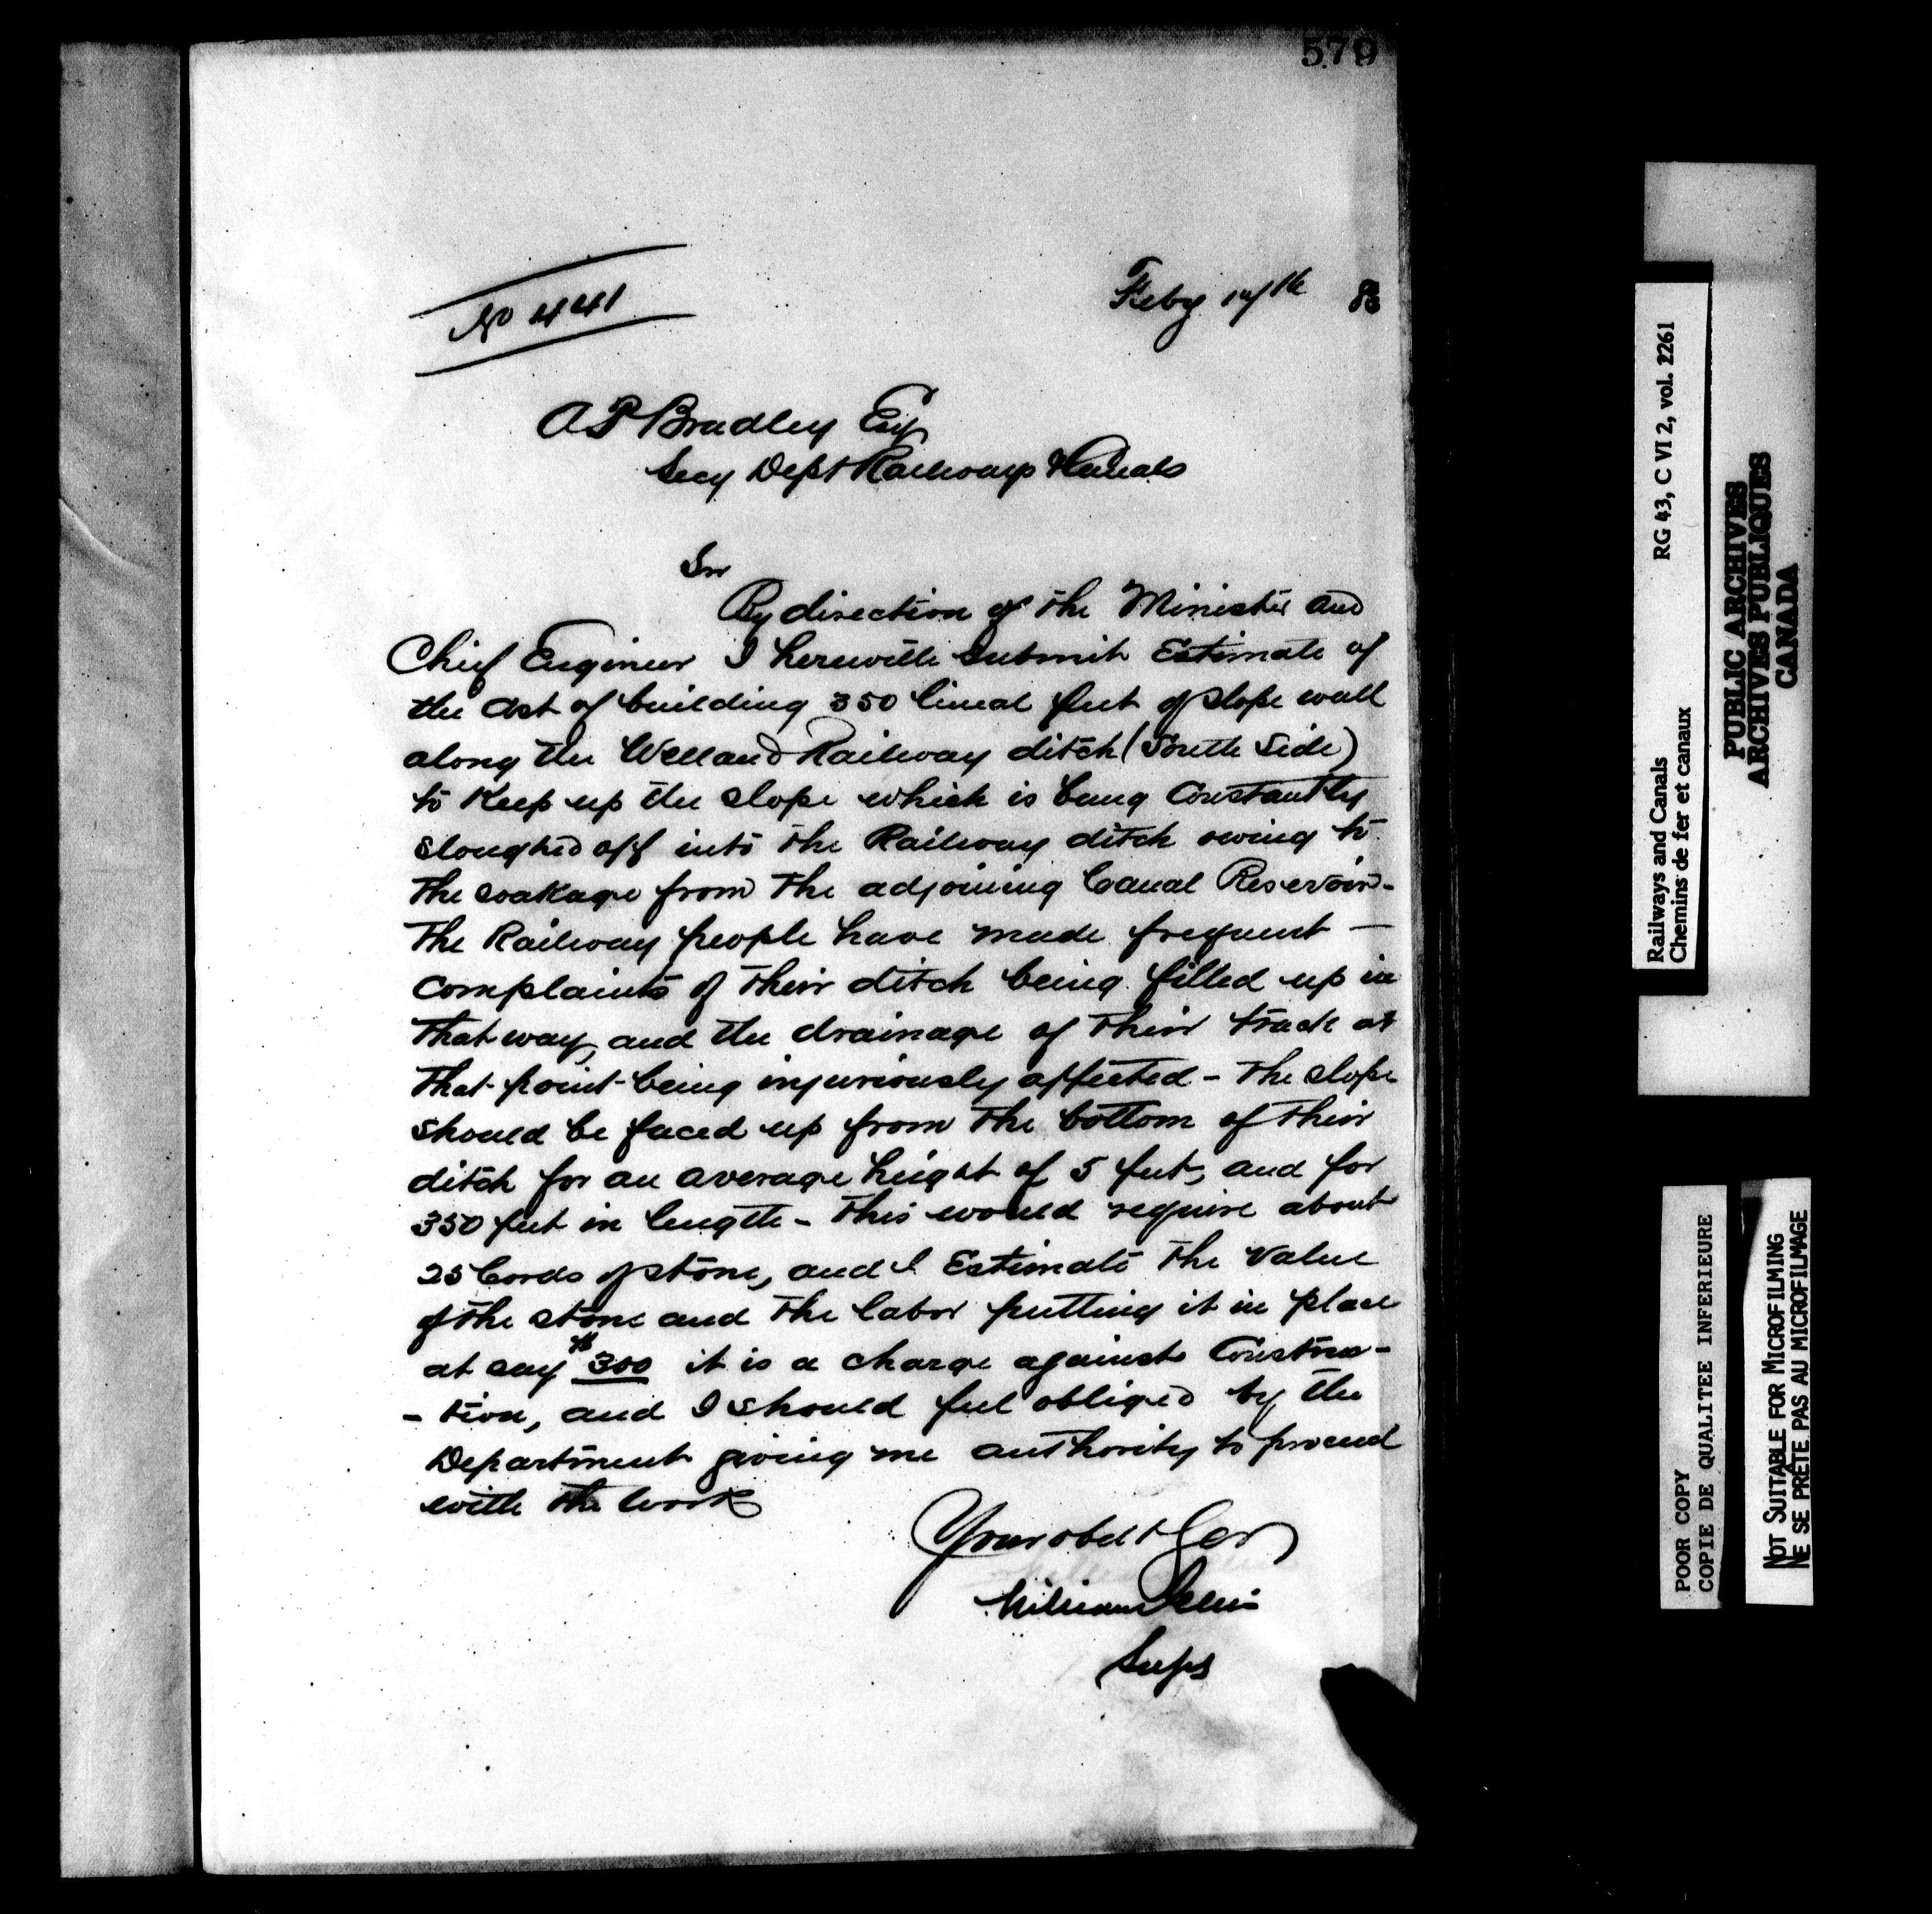 579
No 441
Feby 17th 8
A P Bradley Esq
Secy Dept Railways & Canals
Sir
By direction of the Minister and
Chief Engineer I herewith submit Estimate of
the Cost of building 350 lineal feet of slope wall
along the Welland Railway ditch (South Side)
to Keep up the slope which is being Constantly
sloughed off into the Railway ditch owing to
the soakage from the adjoining Canal Reservoir -
The Railway people have made frequent —
Complaints of their ditch being filled up in
that way, and the drainage of their track at
that point being injuriously affected - The slope
should be faced up from the bottom of their
ditch for an average height of 5 feet, and for
350 feet in length - This would require about
25 Cords of stone, and I Estimate the Value
of the stone and the labor putting it in place
at say $300 it is a charge against Construc-
- tion, and I should feel obliged by the
Department giving me authority to proceed
with the work
Your obdt Ser
William Ellis
Supt
Railways and Canals RG 43, C VI 2, vol. 2261
Chemins de fer et canaux
PUBLIC ARCHIVES
ARCHIVES PUBLIQUES
CANADA
POOR COPY
COPIE DE QUALITEE INFERIEURE
NOT SUITABLE FOR MICROFILMING
NE SE PRÊTE PAS AU MICROFILMAGE